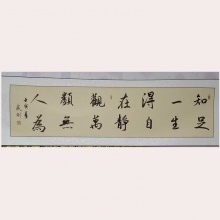 知足
一生
得自
在静
觀萬
類無
人為